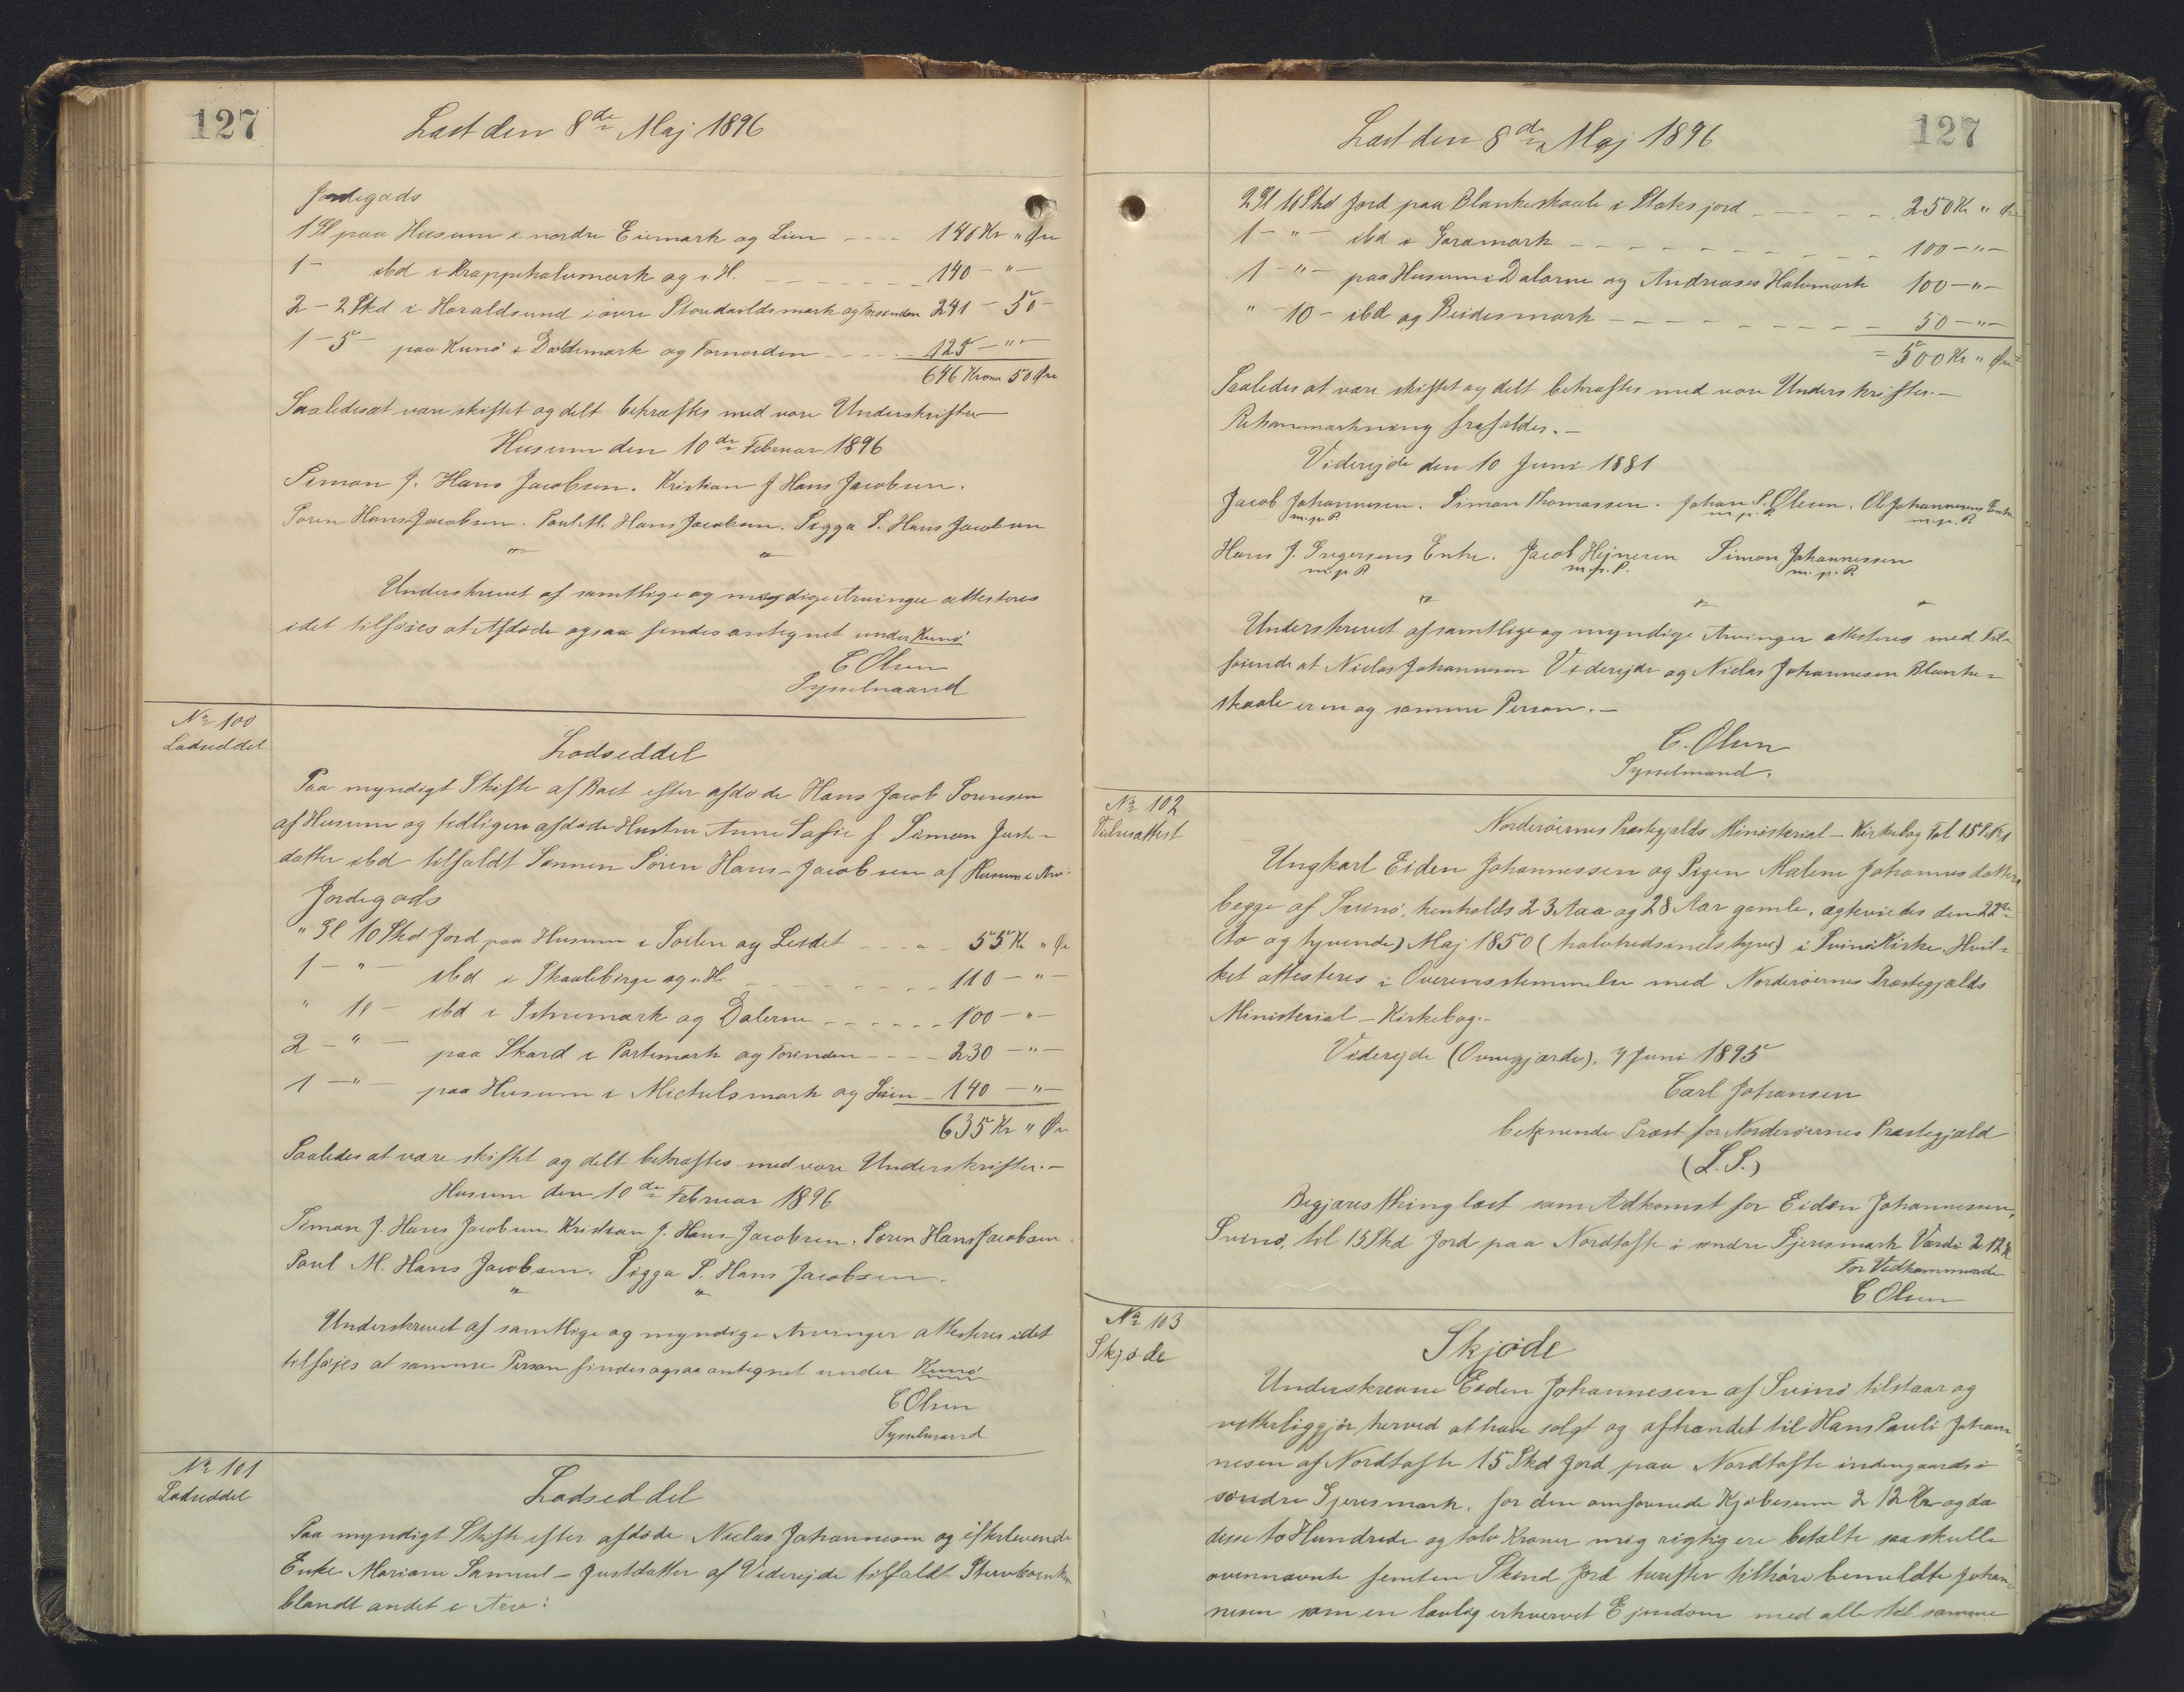 127
Læst den 8de Maj 1896
Jordegods
1 Gl paa Husum i nordre Eiemark og Lien - - - - 140 Kr " Øre
1 - ibd i Krappehalvmark og i H. - - - - - - - 140 - " -
2 - 2 Skd i Haraldsund i øvre Storedailds mark og Forinden 241 - 50 -
1 - 5 - paa Kunø i Doldimark og Fornorden - - - - - 125 - " -
646 Kroner 50 Øre
Saaledes at være skiftet og delt bekræftes med vore Underskrifter
Husum den 10de Februar 1896
Simon J. Hans Jacobsen. Kristian J Hans Jacobsen.
Søren Hans Jacobsen. Poul M. Hans Jacobsen. Sigga S. Hans Jacobsen
Underskrevet af samtlige og myndige Arvinger attesteres
idet tilføies at Afdøde ogsaa findes antegnet under Kunø
C Olsen
Sysselmand
No 100
Lodseddel
Lodseddel
Paa myndigt Skifte af Boet efter afdøde Hans Jacob Sørensen
af Husum og tidligere afdøde Hustru Anne Sofie f. Simon Just-
datter ibd tilfaldt Sønnen Søren Hans-Jacobsen af Husum i Arv:
Jordegods
" Gl 10 Skd Jord paa Husum i Soilen og Leidet - - - - 55 Kr " Øre
1 - " - ibd i Skaalebirge og i H. - - - - - - - - 110 - " -
" 10 - ibd i Itnemark og Dalerne - - - - - - 100 - " -
2 - " - paa Skard i Partemark og Forinden - - - - 230 - " -
1 - " - paa Husum i Michelsmark og Lien - 140 - " -
635 Kr " Øre
Saaledes at være skiftet og delt bekræftes med vore Underskrifter. -
Husum den 10de Februar 1896
Simon J. Hans Jacobsen. Kristian J. Hans-Jacobsen. Søren Hans Jacobsen.
Poul M. Hans Jacobsen. Sigga S. Hans Jacobsen.
Underskrevet af samtlige og myndige Arvinger attesteres idet
tilføjes at samme Person findes ogsaa antegnet under Kunø
C Olsen
Sysselmand
No 101
Lodseddel
Lodseddel
Paa myndigt Skifte efter afdøde Niclas Johannesen og efterlevende
Enke Mariane Samuel-Justdatter af Viderejde tilfaldt Stervboenken
blandt andet i Arv:
127
Læst den 8de Maj 1896
2 Gl 10 Skd Jord paa Blankeskaale i Stoksjord - - - - - 250 Kr " Øre
1 - " - ibd i Garamark - - - - - - - - - 100 - " -
1 - " - paa Husum i Dalerne og Andreases Halvmark 100 - " -
" - 10 - ibd og Beidesmark - - - - - - - - - 50 - " -
= 500 Kr " Øre
Saaledes at være skiftet og delt bekræftes med vore Underskrifter. -
Rekommarkning frafaldes. -
Viderejde den 10 Juni 1881
Jacob Johannesen. Simon Thomassen. Johan S. Olsen. Ole Johannesens Enke
m. p. P. m. p. P. m. p. P.
Hans J. Gregersens Enke. Jacob Hejnesen Simon Johannessen
m. p. P. m. p. P. m. p. P.
Underskrevet af samtlige og myndige Arvinger attesteres med Til-
føiende at Niclas Johannesen Viderejde og Niclas Johannesen Blanke-
skaale er en og samme Person. -
C. Olsen
Sysselmand.
No 102
Vielsesattest
Norderøernes Præstegjælds Ministerial-Kirkebog Fol 15 L. No 1
Ungkarl Eiden Johannessen og Pigen Malene Johannesdatter,
begge af Svinø, henholds 23 Aar og 28 Aar gamle, ægteviedes den 22de
(to og tyvende) Maj 1850 (halvtredsinds tyve) i Svinø Kirke. Hvil-
ket attesteres i Overensstemmelse med Norderøernes Præstegjælds
Ministerial-Kirkebog. -
Viderejde (Ønnegjærde), 7 Juni 1895
Carl Johansen
betjenende Præst for Norderøernes Præstegjæld
(L. S.)
Begjæres thinglæst som Adkomst for Eiden Johannessen,
Svinø, til 15 Skd Jord paa Nordtofte i søndre Gjeresmark Værdi 212 Kr
For Vedkommende
C Olsen
No 103
Skjøde
Skjøde
Underskrevne Eiden Johannesen af Svinø tilstaar og
vitterliggjør herved at have solgt og afhændet til Hans Pauli Johan-
nesen af Nordtofte 15 Skd Jord paa Nordtofte indengaards i
søndre Gjeresmark, for den omforenede Kjøbesum 212 Kr og da
disse to Hundrede og tolv Kroner mig rigtig ere betalte saa skulle
ovennævnte femten Skind Jord herefter tilhøre bemeldte Johan-
nesen som en lovlig erhvervet Ejendom med alle til samme